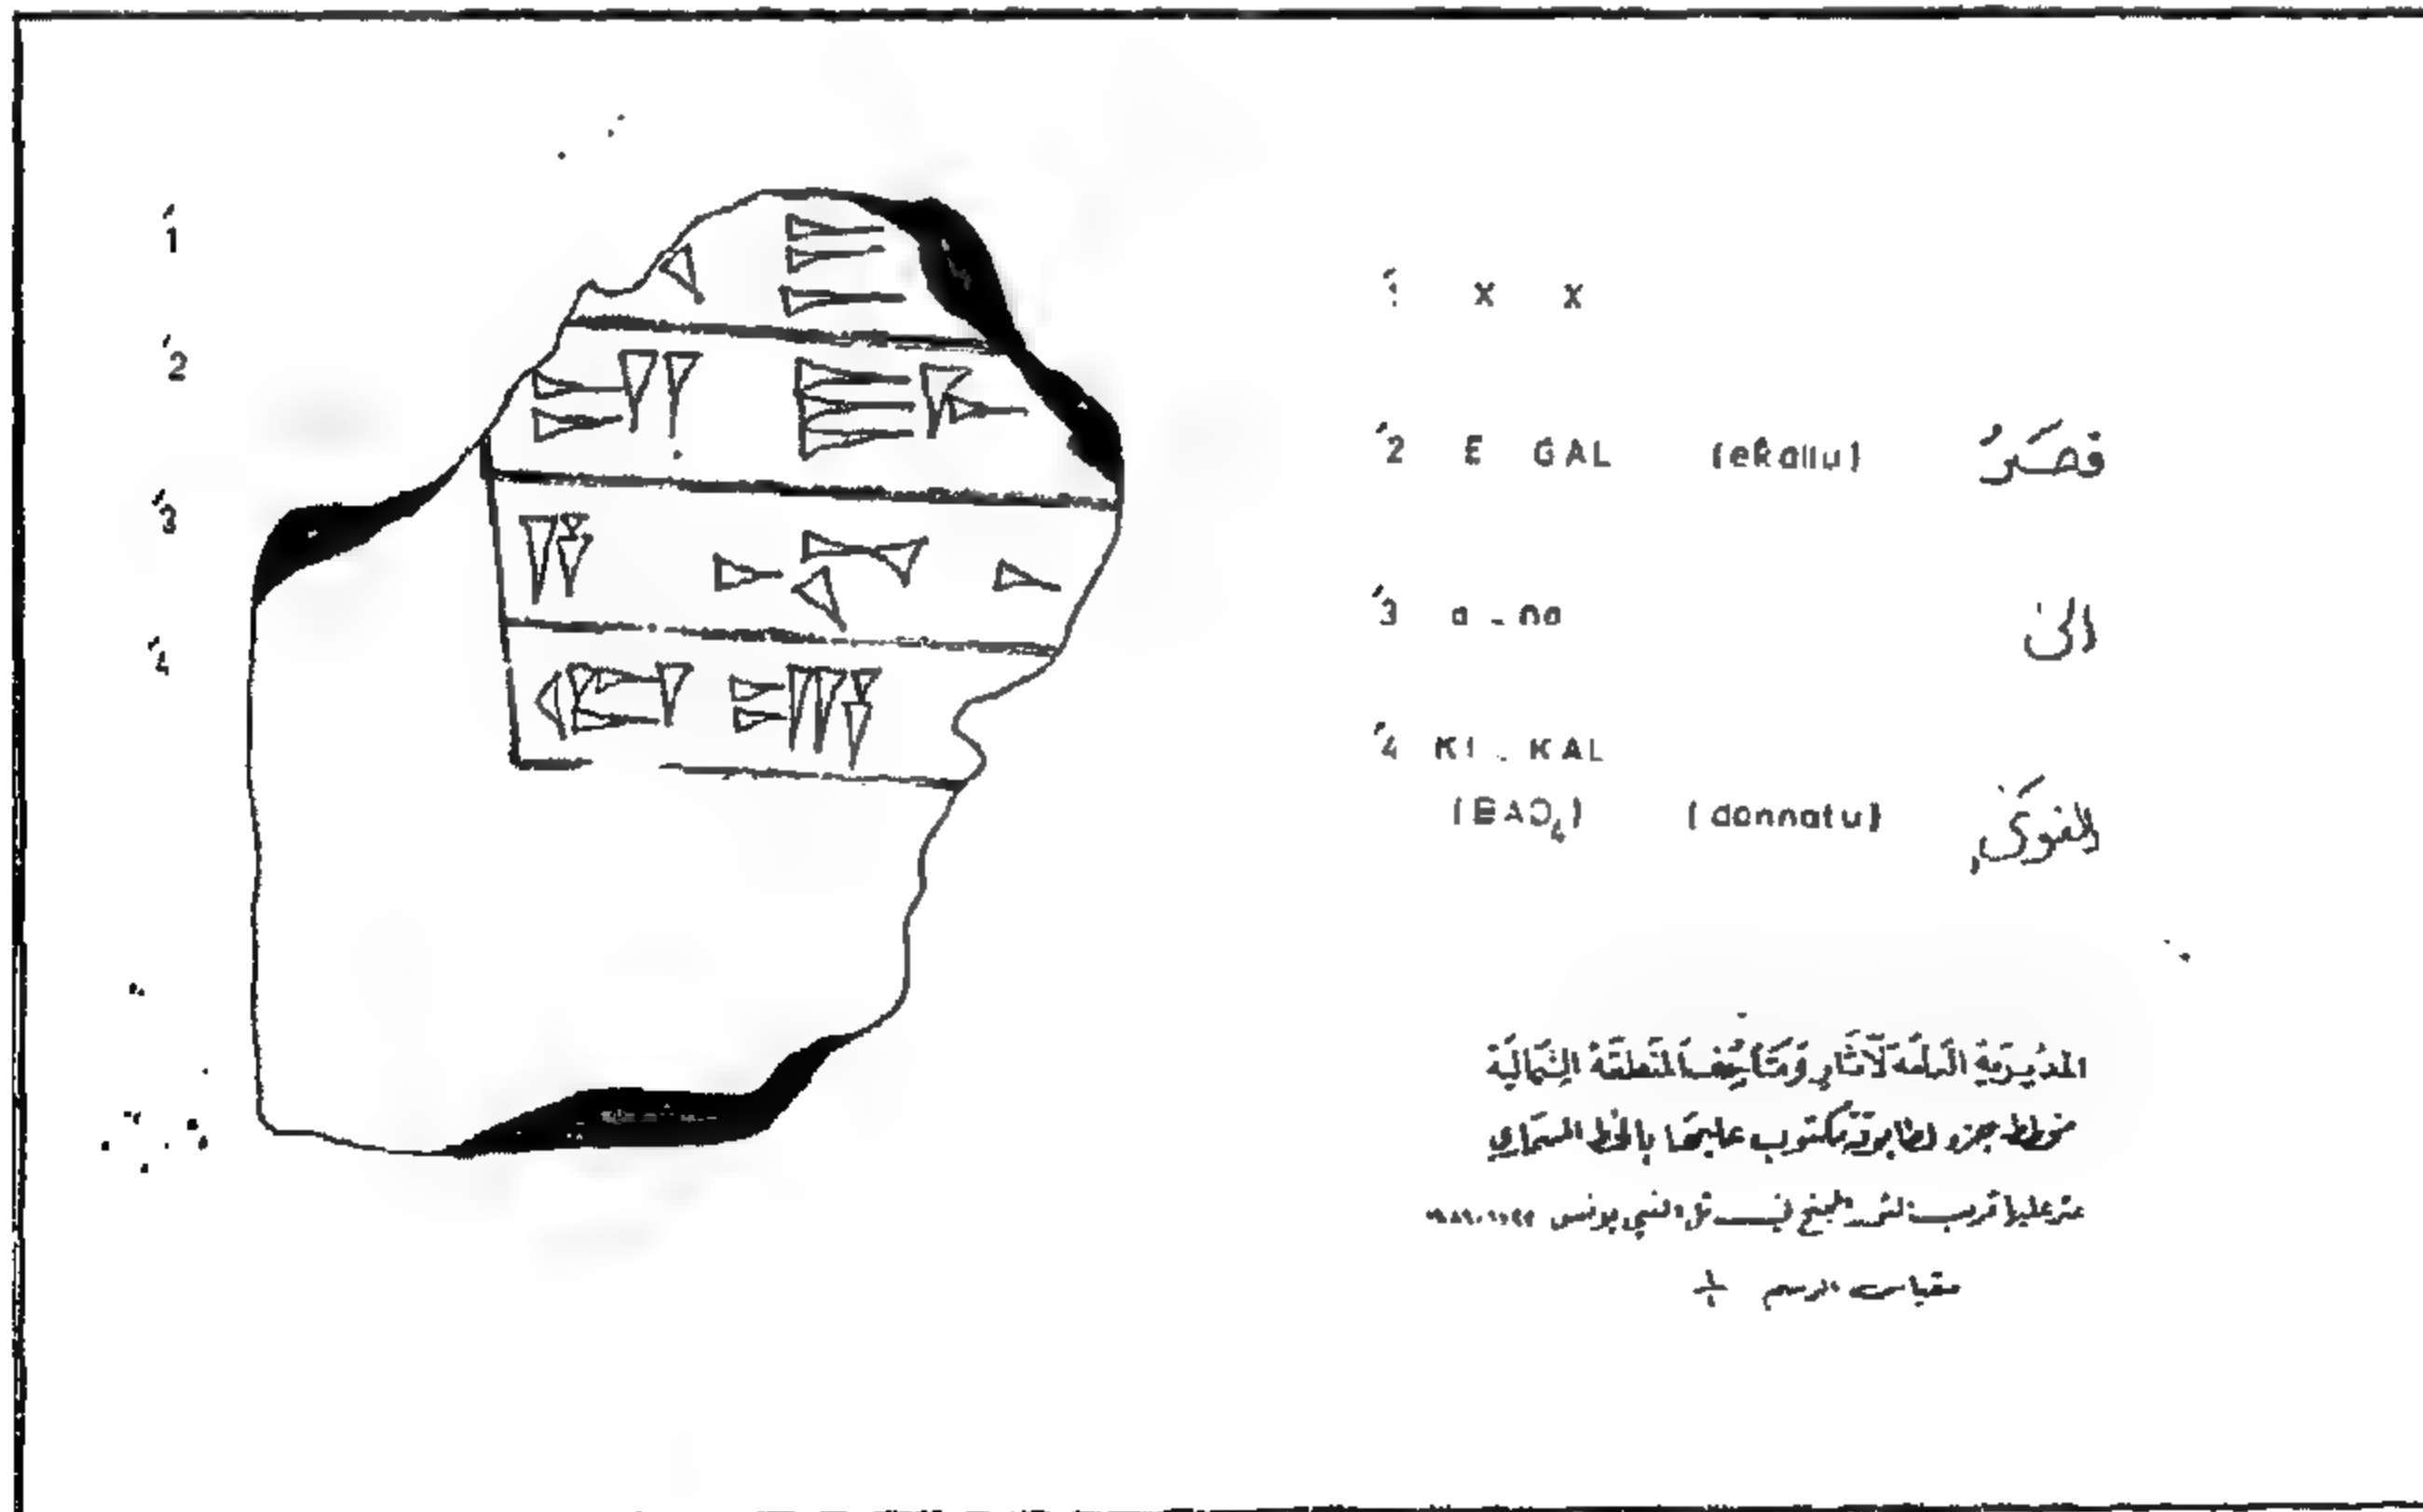 1́
2́
3́
4́
1́ x x
2́ E GAL (ekallu) قصر
3́ a - na الى
4́ KI . KAL
(BAD₄) (dannatu)
المديرية العامة لآثار ومتاحف المنطقة الشمالية
مخطط جزء لطابوقة مكتوب عليها بالخط المسماري
عثر عليها قرب الثور المجنح في تل النبي يونس
مقياس الرسم